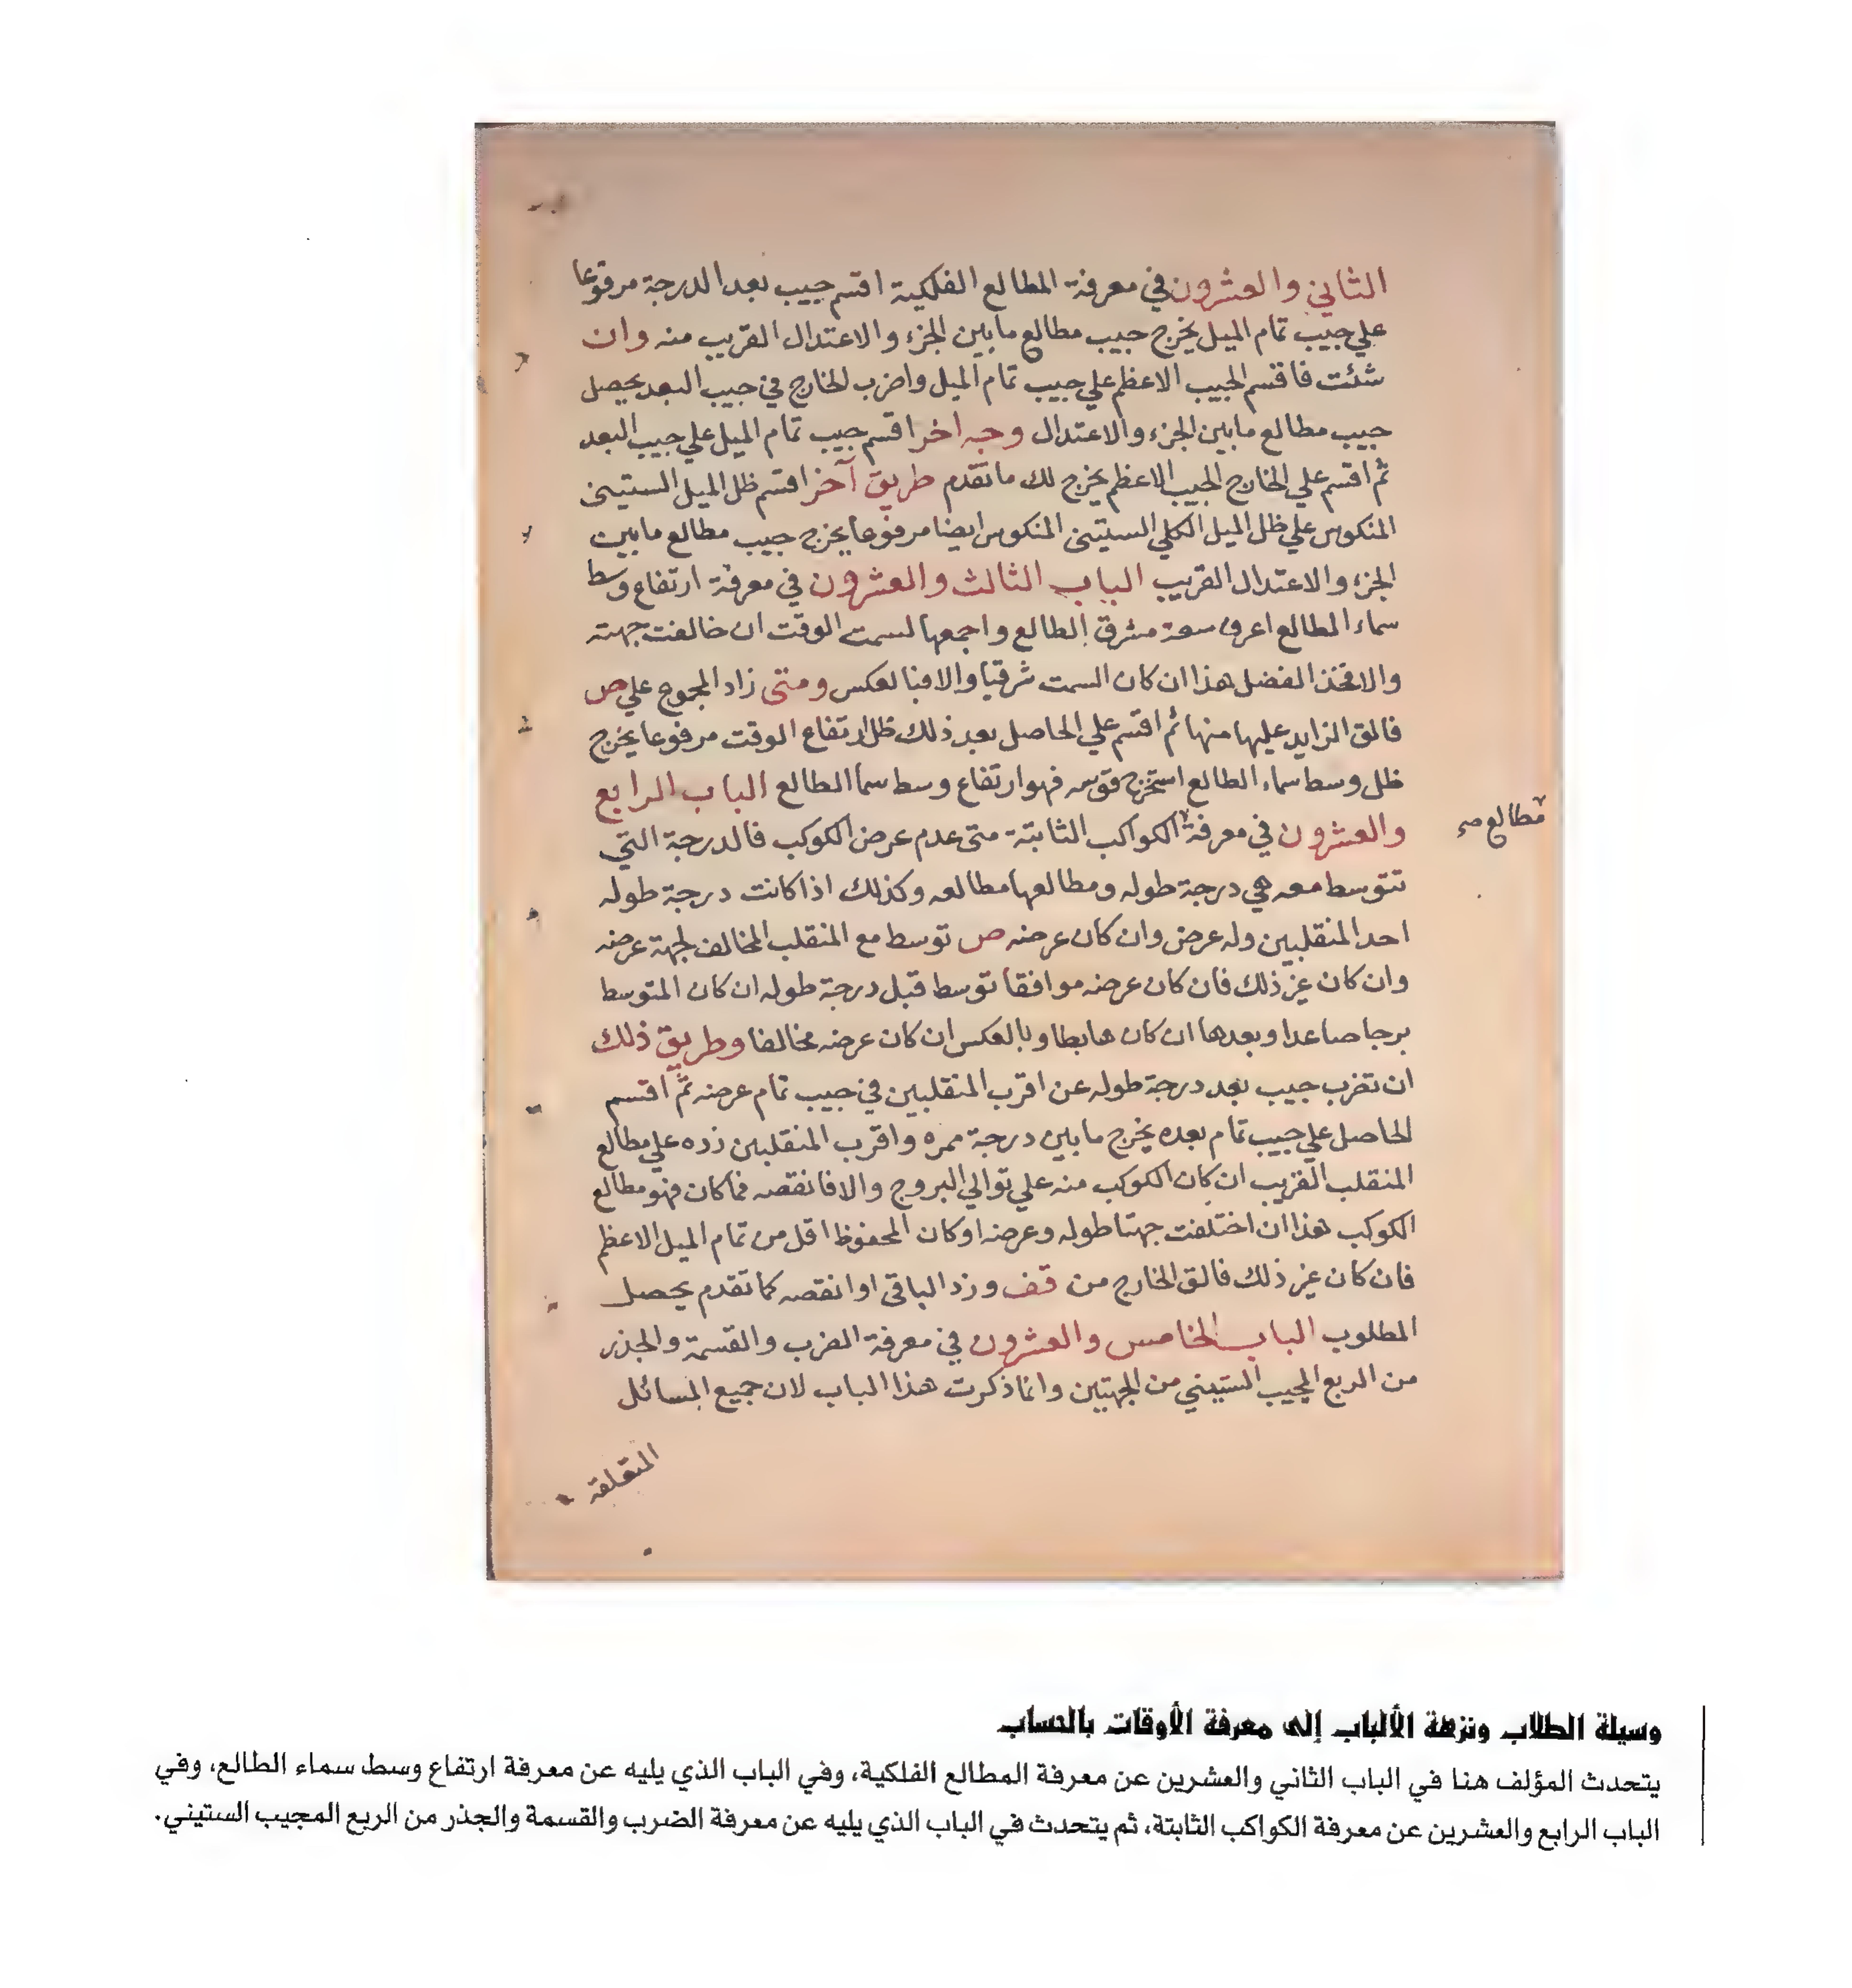 الثاني والعشرون في معرفة المطالع الفلكية اقسم جيب بعد الدرجة مرفوعا
علي جيب تمام الميل يخرج جيب مطالع مابين الجزء والاعتدال القريب منه وان
شئت فاقسم الجيب الاعظم علي جيب تمام الميل واضرب الخارج في جيب البعد يحصل
جيب مطالع مابين الجزء والاعتدال وجه اخر اقسم جيب تمام الميل علي جيب البعد
ثم اقسم علي الخارج الجيب الاعظم يخرج لك ماتقدم طريق آخر اقسم ظل الميل الستيني
المنكوس علي ظل الميل الكلي الستيني المنكوس ايضا مرفوعا يخرج جيب مطالع مابين
الجزء والاعتدال القريب الباب الثالث والعشرون في معرفة ارتفاع وسط
سماء المطالع اعرف سعة مشرق الطالع واجمعها لسمت الوقت ان خالفت جهته
والا فخذ الفضل هذا ان كان السمت شرقيا والا فبالعكس ومتى زاد المجموع علي ص
فالق الزايد عليها منها ثم اقسم علي الحاصل بعد ذلك ظل ارتفاع الوقت مرفوعا يخرج
ظل وسط سماء الطالع استخرج قوسه فهو ارتفاع وسط سما الطالع الباب الرابع
والعشرون في معرفة الكواكب الثابتة متى عدم عرض الكوكب فالدرجة التي
مطالع صح
تتوسط معه هي درجة طوله ومطالعها مطالعه وكذلك اذا كانت درجة طوله
احد المنقلبين وله عرض وان كان عرضه ص توسط مع المنقلب المخالف لجهة عرضه
وان كان غير ذلك فان كان عرضه موافقا توسط قبل درجة طوله ان كان المتوسط
برجا صاعدا وبعدها ان كان هابطا وبالعكس ان كان عرضه مخالفا وطريق ذلك
ان تضرب جيب بعد درجة طوله عن اقرب المنقلبين في جيب تمام عرضه ثم اقسم
الحاصل علي جيب تمام بعده يخرج مابين درجة ممره واقرب المنقلبين زده علي مطالع
المنقلب القريب ان كان الكوكب منه علي توالي البروج والا فانقصه فما كان فهو مطالع
الكوكب هذا ان اختلفت جهتا طوله وعرضه او كان المحفوظ اقل من تمام الميل الاعظم
فان كان غير ذلك فالق الخارج من قف وزد الباقي او انقصه كما تقدم يحصل
المطلوب الباب الخامس والعشرون في معرفة الضرب والقسمة والجذر
من الربع المجيب الستيني من الجهتين وانما ذكرت هذا الباب لان جميع المسائل
المتعلقة
وسيلة الطلاب ونزهة الألباب إلى معرفة الأوقات بالحساب
يتحدث المؤلف هنا في الباب الثاني والعشرين عن معرفة المطالع الفلكية، وفي الباب الذي يليه عن معرفة ارتفاع وسط سماء الطالع، وفي
الباب الرابع والعشرين عن معرفة الكواكب الثابتة، ثم يتحدث في الباب الذي يليه عن معرفة الضرب والقسمة والجذر من الربع المجيب الستيني.